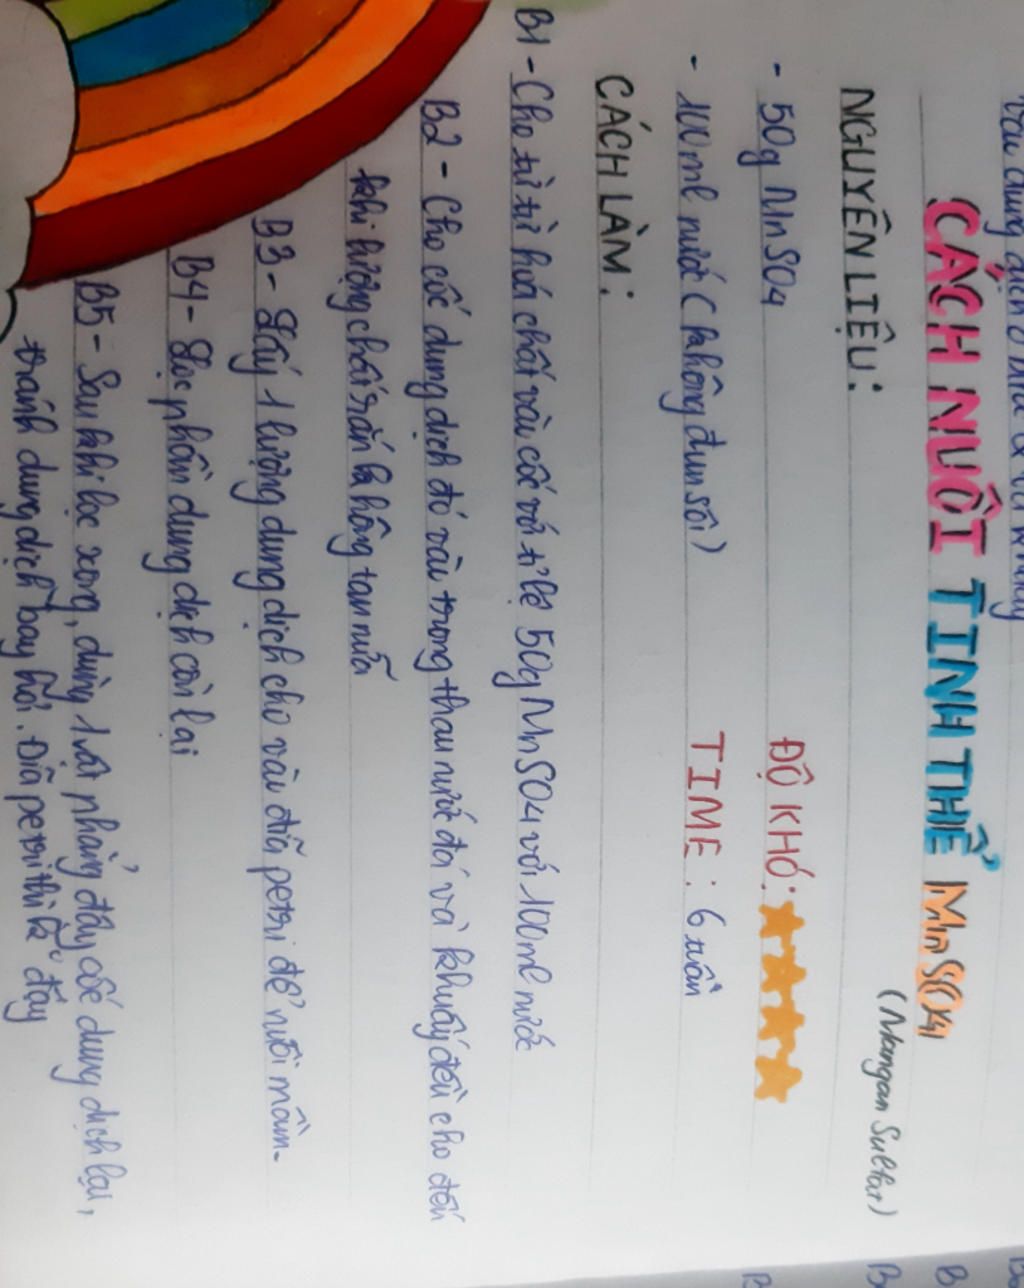 CÁCH NUÔI TINH THỂ MnSO4
(Mangan Sulfat)
NGUYÊN LIỆU:
- 50g MnSO4
ĐỘ KHÓ:
- 100ml nước (không đun sôi)
TIME: 6 tuần
CÁCH LÀM:
B1 - Cho từ từ hoá chất vào cốc với tỉ lệ 50g MnSO4 với 100ml nước
B2 - Cho cốc dung dịch đó vào trong thau nước đá và khuấy đều cho đến
khi lượng chất rắn không tan nữa
B3 - Lấy 1 lượng dung dịch cho vào đĩa petri để nuôi mầm.
B4 - Lọc phần dung dịch còn lại
B5 - Sau khi lọc xong, dùng 1 vật phẳng đậy cốc dung dịch lại,
tránh dung dịch bay hơi. Đĩa petri thì k đậy